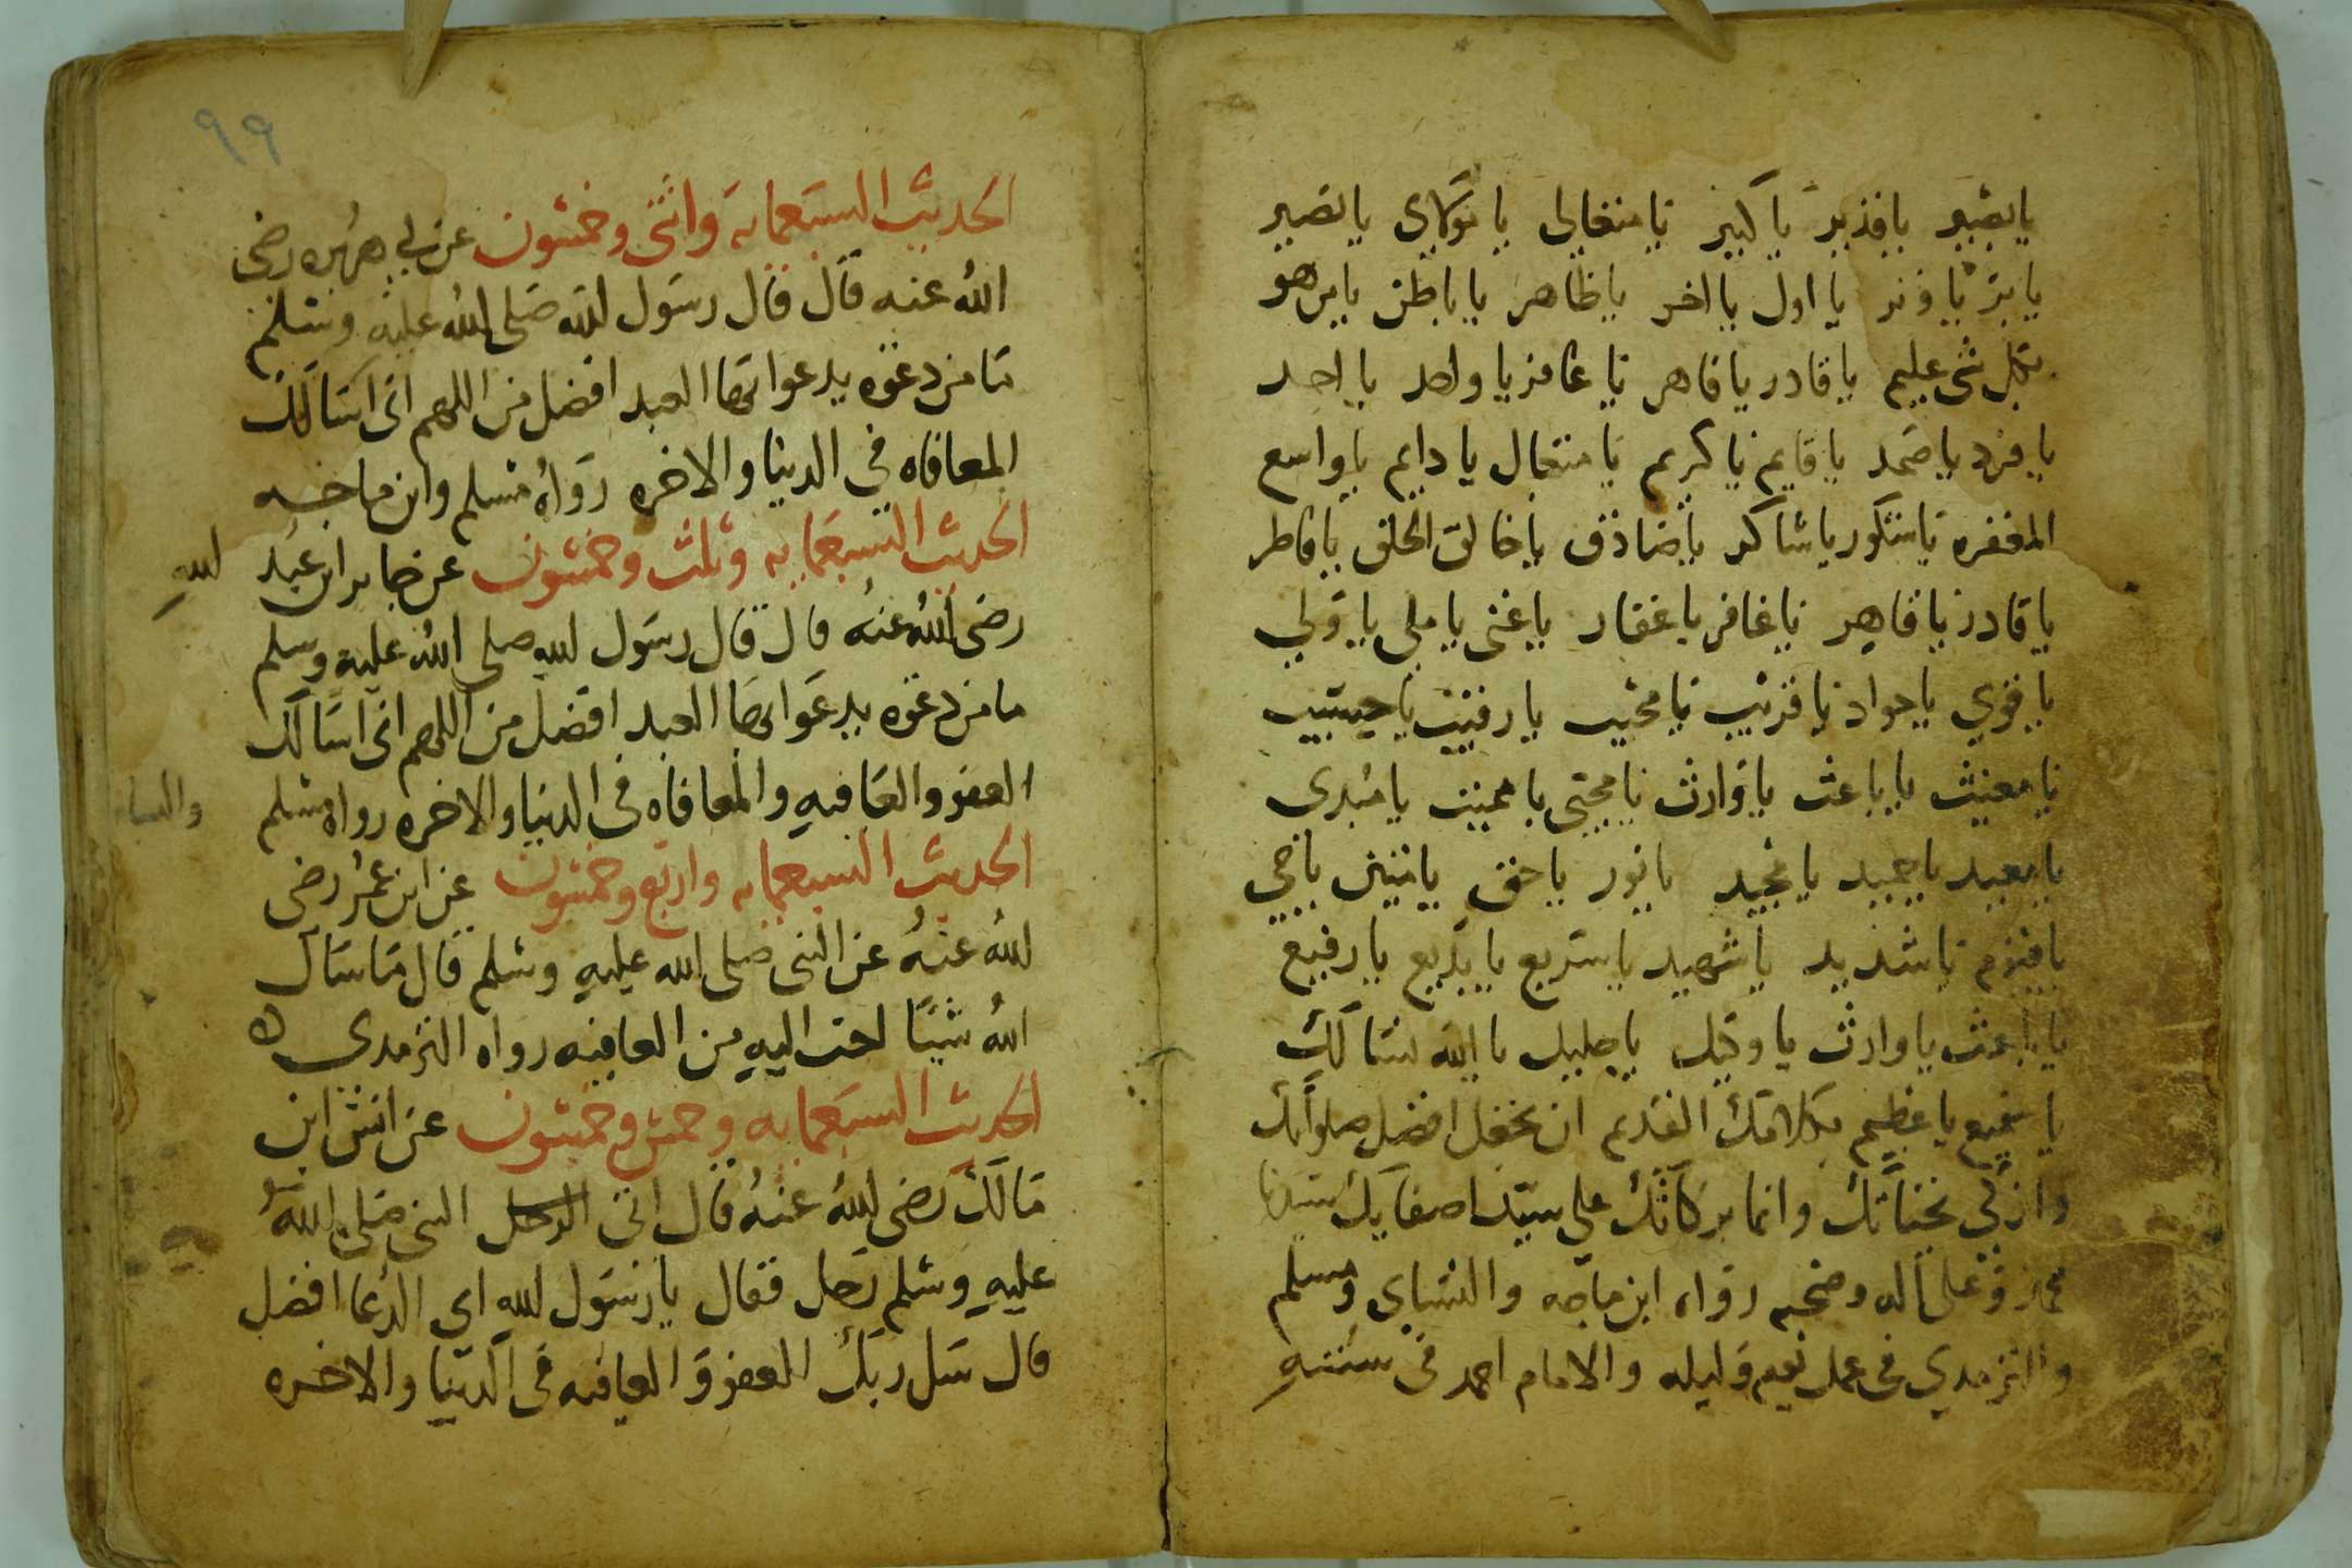 يا بصير يا قدير يا كبير يا متعالي يا يا نصير
يا بر يا وتر يا اول يا اخر يا ظاهر يا باطن يا من هو
بكل شى عليم يا قادر يا قاهر يا غافر يا واحد يا احد
يا فرد يا صمد يا قايم يا كريم يا متعال يا دايم يا واسع
المغفره يا شكور يا شاكر يا صادق يا خالق الخلق يا فاطر
يا قادر يا قاهر يا غافر يا غفار يا غنى يا ملى يا ولي
يا قوي يا جواد يا قريب يا مجيب يا رقيب يا حسيب
يا مغيث يا باعث يا وارث يا محيى يا مميت يا مبدى
يا معيد يا حميد يا مجيد يا نور يا حق يا مبين يا حي
يا قيوم يا شديد يا شهيد يا سريع يا بديع يا رفيع
يا باعث يا وارث يا وكيل يا جليل يا الله نسالك
يا سميع يا عظيم بكلامك القديم ان تجعل افضل صلواتك
وازكى تحياتك وانما بركاتك على سيد اصفيايك سيدنا
محمد وعلى اله وصحبه رواه ابن ماجه والنساي ومسلم
والترمدي فى عمل يوم وليله والامام احمد فى سننه
٩٩
الحديث السبعمايه واثنى وخمسون عن ابي هريره رضى
الله عنه قال قال رسول الله صلى الله عليه وسلم
ما من دعوه يدعوا بها العبد افضل من اللهم انى اسالك
المعافاه في الدنيا والاخره رواه مسلم وابن ماجه
الحديث السبعمايه وثلث وخمسون عن جابر ابن عبد الله
رضى الله عنه قال قال رسول الله صلى الله عليه وسلم
ما من دعوه يدعوا بها العبد افضل من اللهم انى اسالك
العفو والعافيه والمعافاه فى الدنيا والاخره رواه مسلم
الحديث السبعمايه واربع وخمسون عن ابن عمر رضى
الله عنه عن النبى صلى الله عليه وسلم قال ما سال
الله شيئا احب اليه من العافيه رواه الترمدى
الحديث السبعمايه وخمس وخمسون عن انس ابن
مالك رضى الله عنه قال اتى الرجل النبى صلى الله
عليه وسلم رجل فقال يا رسول الله اي الدعا افضل
قال سل ربك العفو والعافيه فى الدنيا والاخره